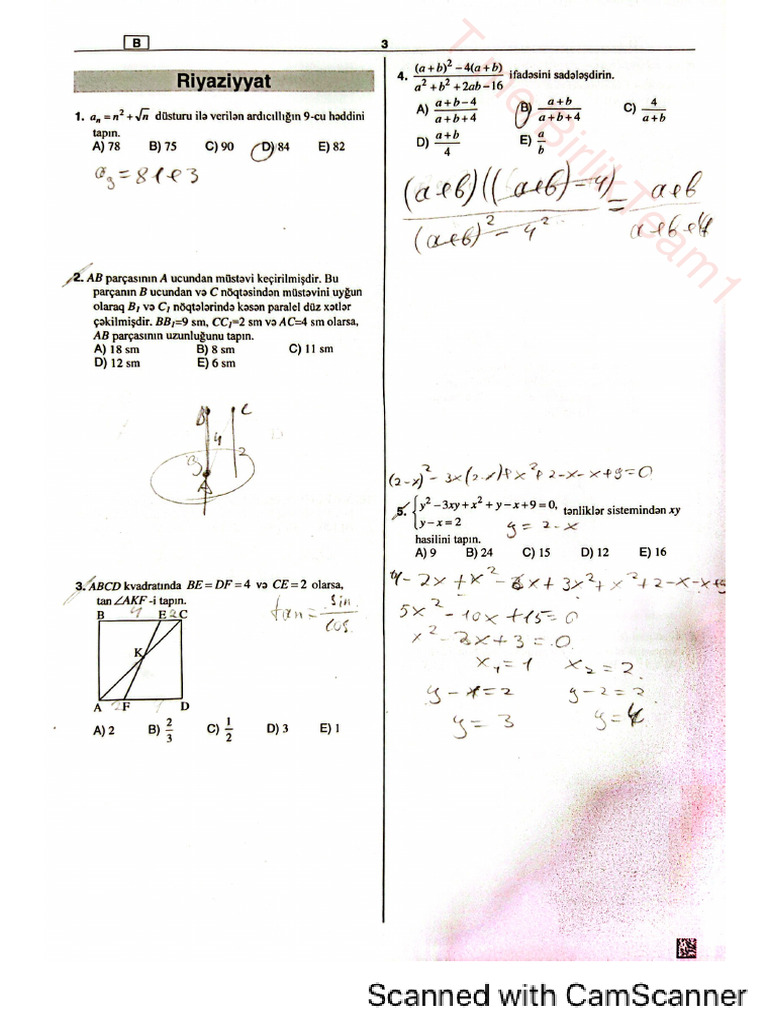 B
3
Riyaziyyat
1. aₙ = n² + √n düsturu ilə verilən ardıcıllığın 9-cu həddini
tapın.
A) 78 B) 75 C) 90 D) 84 E) 82
a₉ = 81+3
2. AB parçasının A ucundan müstəvi keçirilmişdir. Bu
parçanın B ucundan və C nöqtəsindən müstəvini uyğun
olaraq B₁ və C₁ nöqtələrində kəsən paralel düz xətlər
çəkilmişdir. BB₁=9 sm, CC₁=2 sm və AC=4 sm olarsa,
AB parçasının uzunluğunu tapın.
A) 18 sm B) 8 sm C) 11 sm
D) 12 sm E) 6 sm
B C
4
9 2
A
3. ABCD kvadratında BE = DF = 4 və CE = 2 olarsa,
tan ∠AKF -i tapın.
tan = sin/cos
B 4 E 2 C
K
A 2 F 4 D
A) 2 B) 2/3 C) 1/2 D) 3 E) 1
4. ((a+b)² − 4(a+b))/(a² + b² + 2ab − 16) ifadəsini sadələşdirin.
A) (a+b−4)/(a+b+4) B) (a+b)/(a+b+4) C) 4/(a+b)
D) (a+b)/4 E) a/b
((a+b)((a+b)−4))/((a+b)² − 4²) = (a+b)/(a+b+4)
(2-x)² - 3x(2-x)+x²+2-x-x+9=0
5. { y² − 3xy + x² + y − x + 9 = 0, y − x = 2 tənliklər sistemindən xy
y = 2-x
hasilini tapın.
A) 9 B) 24 C) 15 D) 12 E) 16
4 - 2x + x² - 6x + 3x² + x² + 2 - x - x + 9
5x² - 10x + 15 = 0
x² - 2x + 3 = 0
x₁ = 1 x₂ = 2
y - 1 = 2 y - 2 = 2
y = 3 y = 4
The Birlik Team1
Scanned with CamScanner